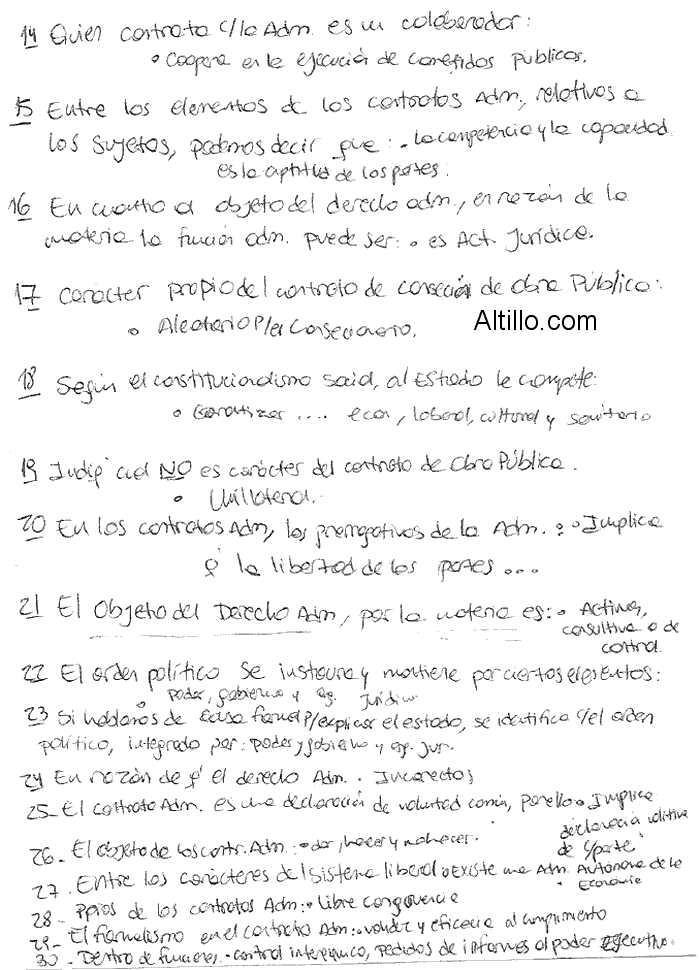 14 Quien contrata c/la Adm. es un colaborador:
• Coopera en la ejecución de cometidos públicos.
15 Entre los elementos de los contratos Adm, relativos a
los sujetos, podemos decir que: - la competencia y la capacidad
es la aptitud de las partes.
16 En cuanto al objeto del derecho adm., en razón de la
materia la función adm. puede ser: • es Act. Jurídica.
17 Carácter propio del contrato de concesión de obra Pública:
• Aleatorio p/el Concesionario.
Altillo.com
18 Según el constitucionalismo social, al Estado le compete:
• Garantizar .... econ, laboral, cultural y sanitario
19 Indiq' cual NO es carácter del contrato de Obra Pública.
• Unilateral.
20 En los contratos Adm, las prerrogativas de la Adm. : • Implica
q' la libertad de las partes ...
21 El Objeto del Derecho Adm, por la materia es: • Activa,
consultiva o de
control.
22 El orden político se instaura y mantiene por ciertos elementos:
• poder, gobierno y Jurídico
23 Si hablamos de causa formal p/explicar el estado, se identifica c/el orden
político, integrado por: poder y gobierno y jur.
24 En razón de q' el derecho Adm. • Incorectos
25- El contrato Adm. es una declaración de voluntad común, por ello • Implica
declaración volitiva
de c/parte
26- El objeto de los contr. Adm: • dar, hacer y no hacer.
27. Entre los carácteres del sistema liberal • Existe una Adm. Autónoma de la
• Economía
28- Ppios de los contratos Adm: • Libre congruencia
29- El formalismo en el contrato Adm: • validez y eficacia al cumplimiento
30- Dentro de funciones - control pedidos de informes al poder Ejecutivo.